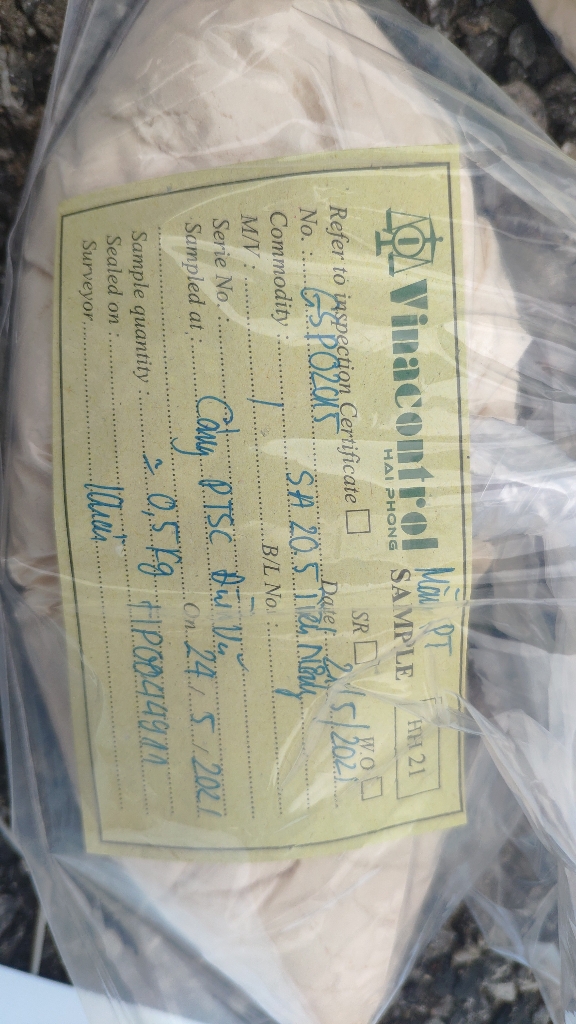 Vinacontrol
HAI PHONG
SAMPLE
HH 21
Mẫu PT
SR
W.O
Refer to inspection Certificate
No. : GSP02015 Date /5/2021
Commodity : SA 20.5
M/V : / B/L No. :
Serie No. :
Sampled at : Cảng PTSC Đình Vũ On 24 / 5 / 2021
Sample quantity : ≈ 0,5 kg
Sealed on :
Surveyor